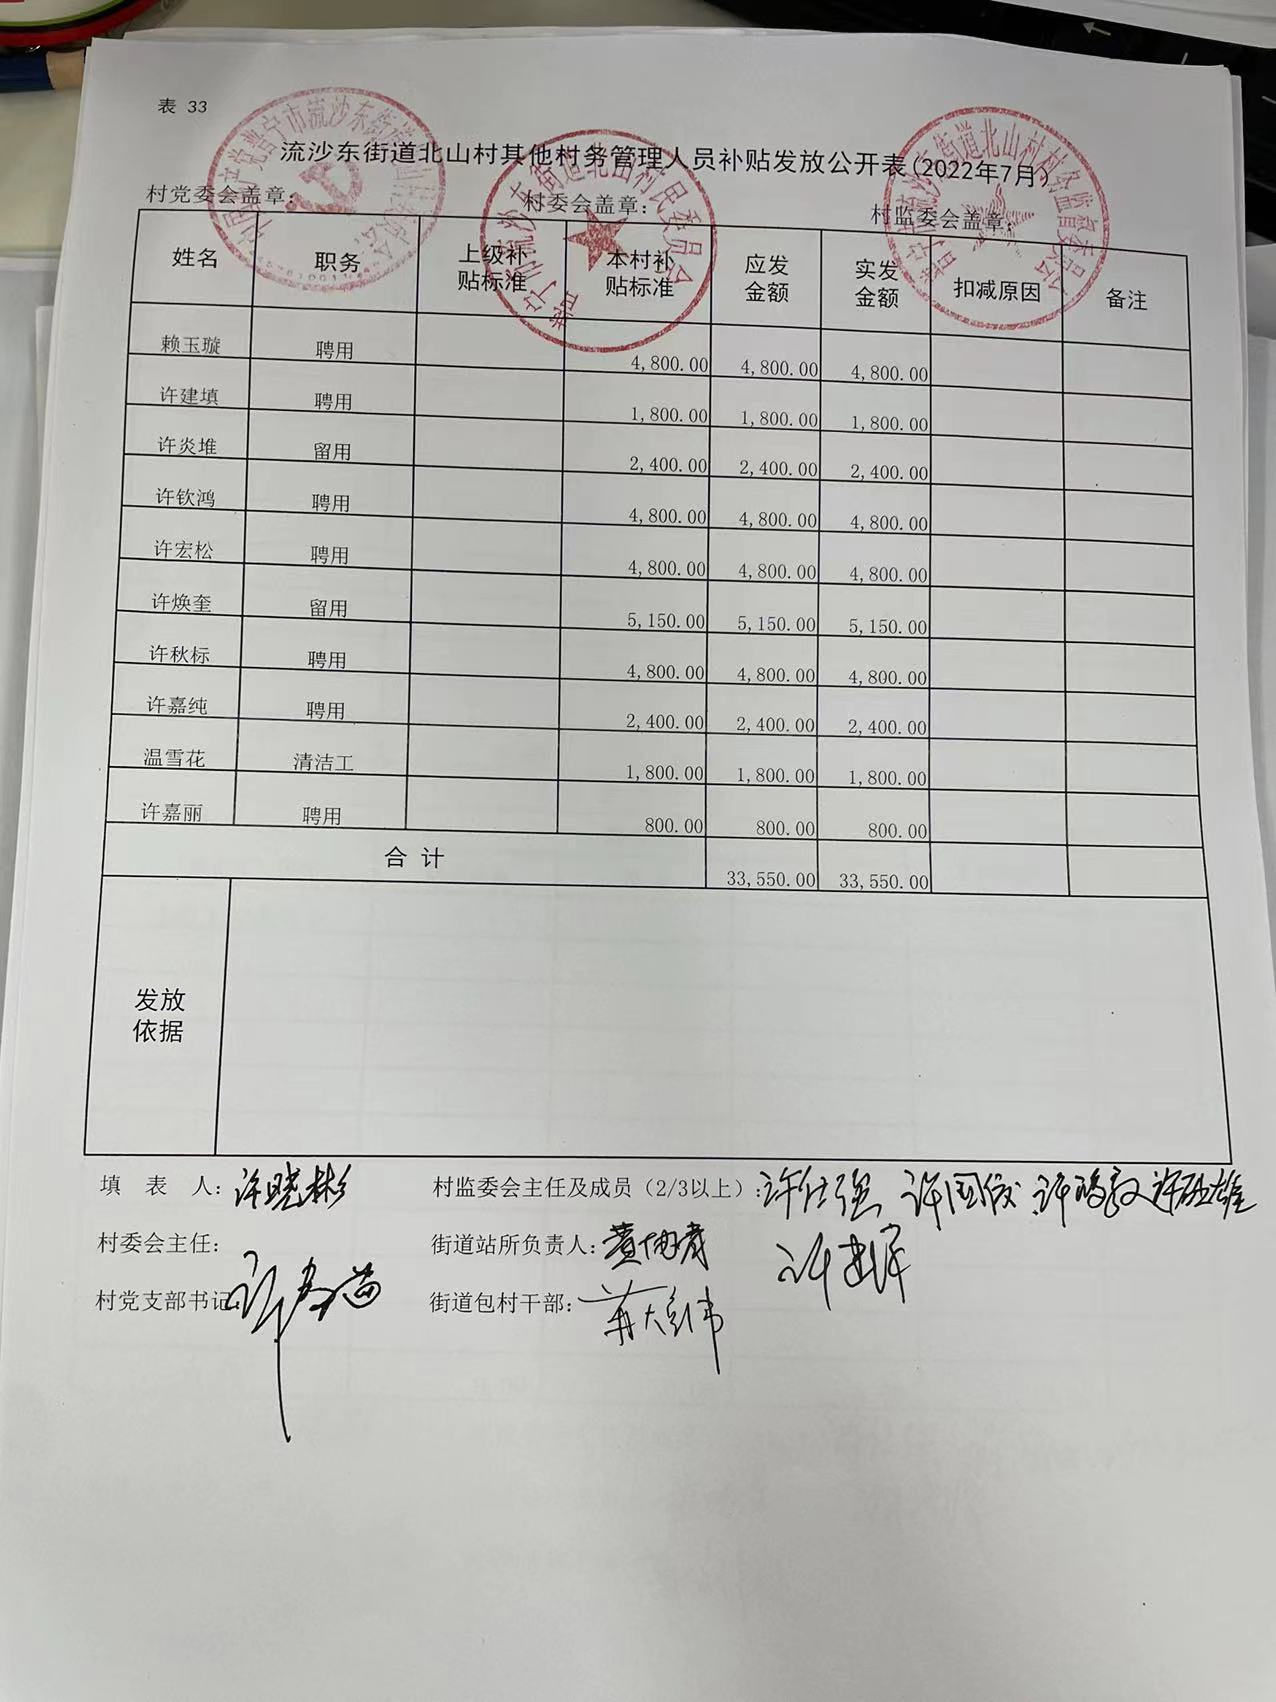 表 33
流沙东街道北山村其他村务管理人员补贴发放公开表(2022年7月)
村党委会盖章: 村委会盖章: 村监委会盖章:
姓名 职务 上级补贴标准 本村补贴标准 应发金额 实发金额 扣减原因 备注
赖玉璇 聘用 4,800.00 4,800.00 4,800.00
许建填 聘用 1,800.00 1,800.00 1,800.00
许炎堆 留用 2,400.00 2,400.00 2,400.00
许钦鸿 聘用 4,800.00 4,800.00 4,800.00
许宏松 聘用 4,800.00 4,800.00 4,800.00
许焕奎 留用 5,150.00 5,150.00 5,150.00
许秋标 聘用 4,800.00 4,800.00 4,800.00
许嘉纯 聘用 2,400.00 2,400.00 2,400.00
温雪花 清洁工 1,800.00 1,800.00 1,800.00
许嘉丽 聘用 800.00 800.00 800.00
合 计 33,550.00 33,550.00
发放依据
填 表 人: 许晓彬 村监委会主任及成员(2/3以上): 许仕强
村委会主任: 街道站所负责人:
村党支部书记 街道包村干部: